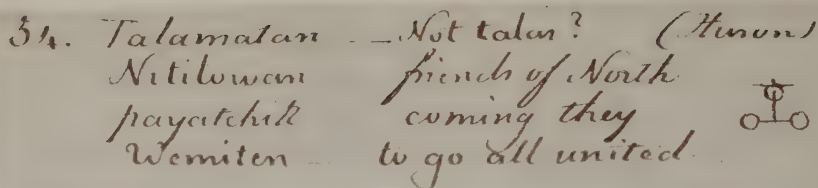 54. Talamatan — Not talar? (Huron)
Nitilowan friends of North
payatchik coming they
Wemiten to go all united